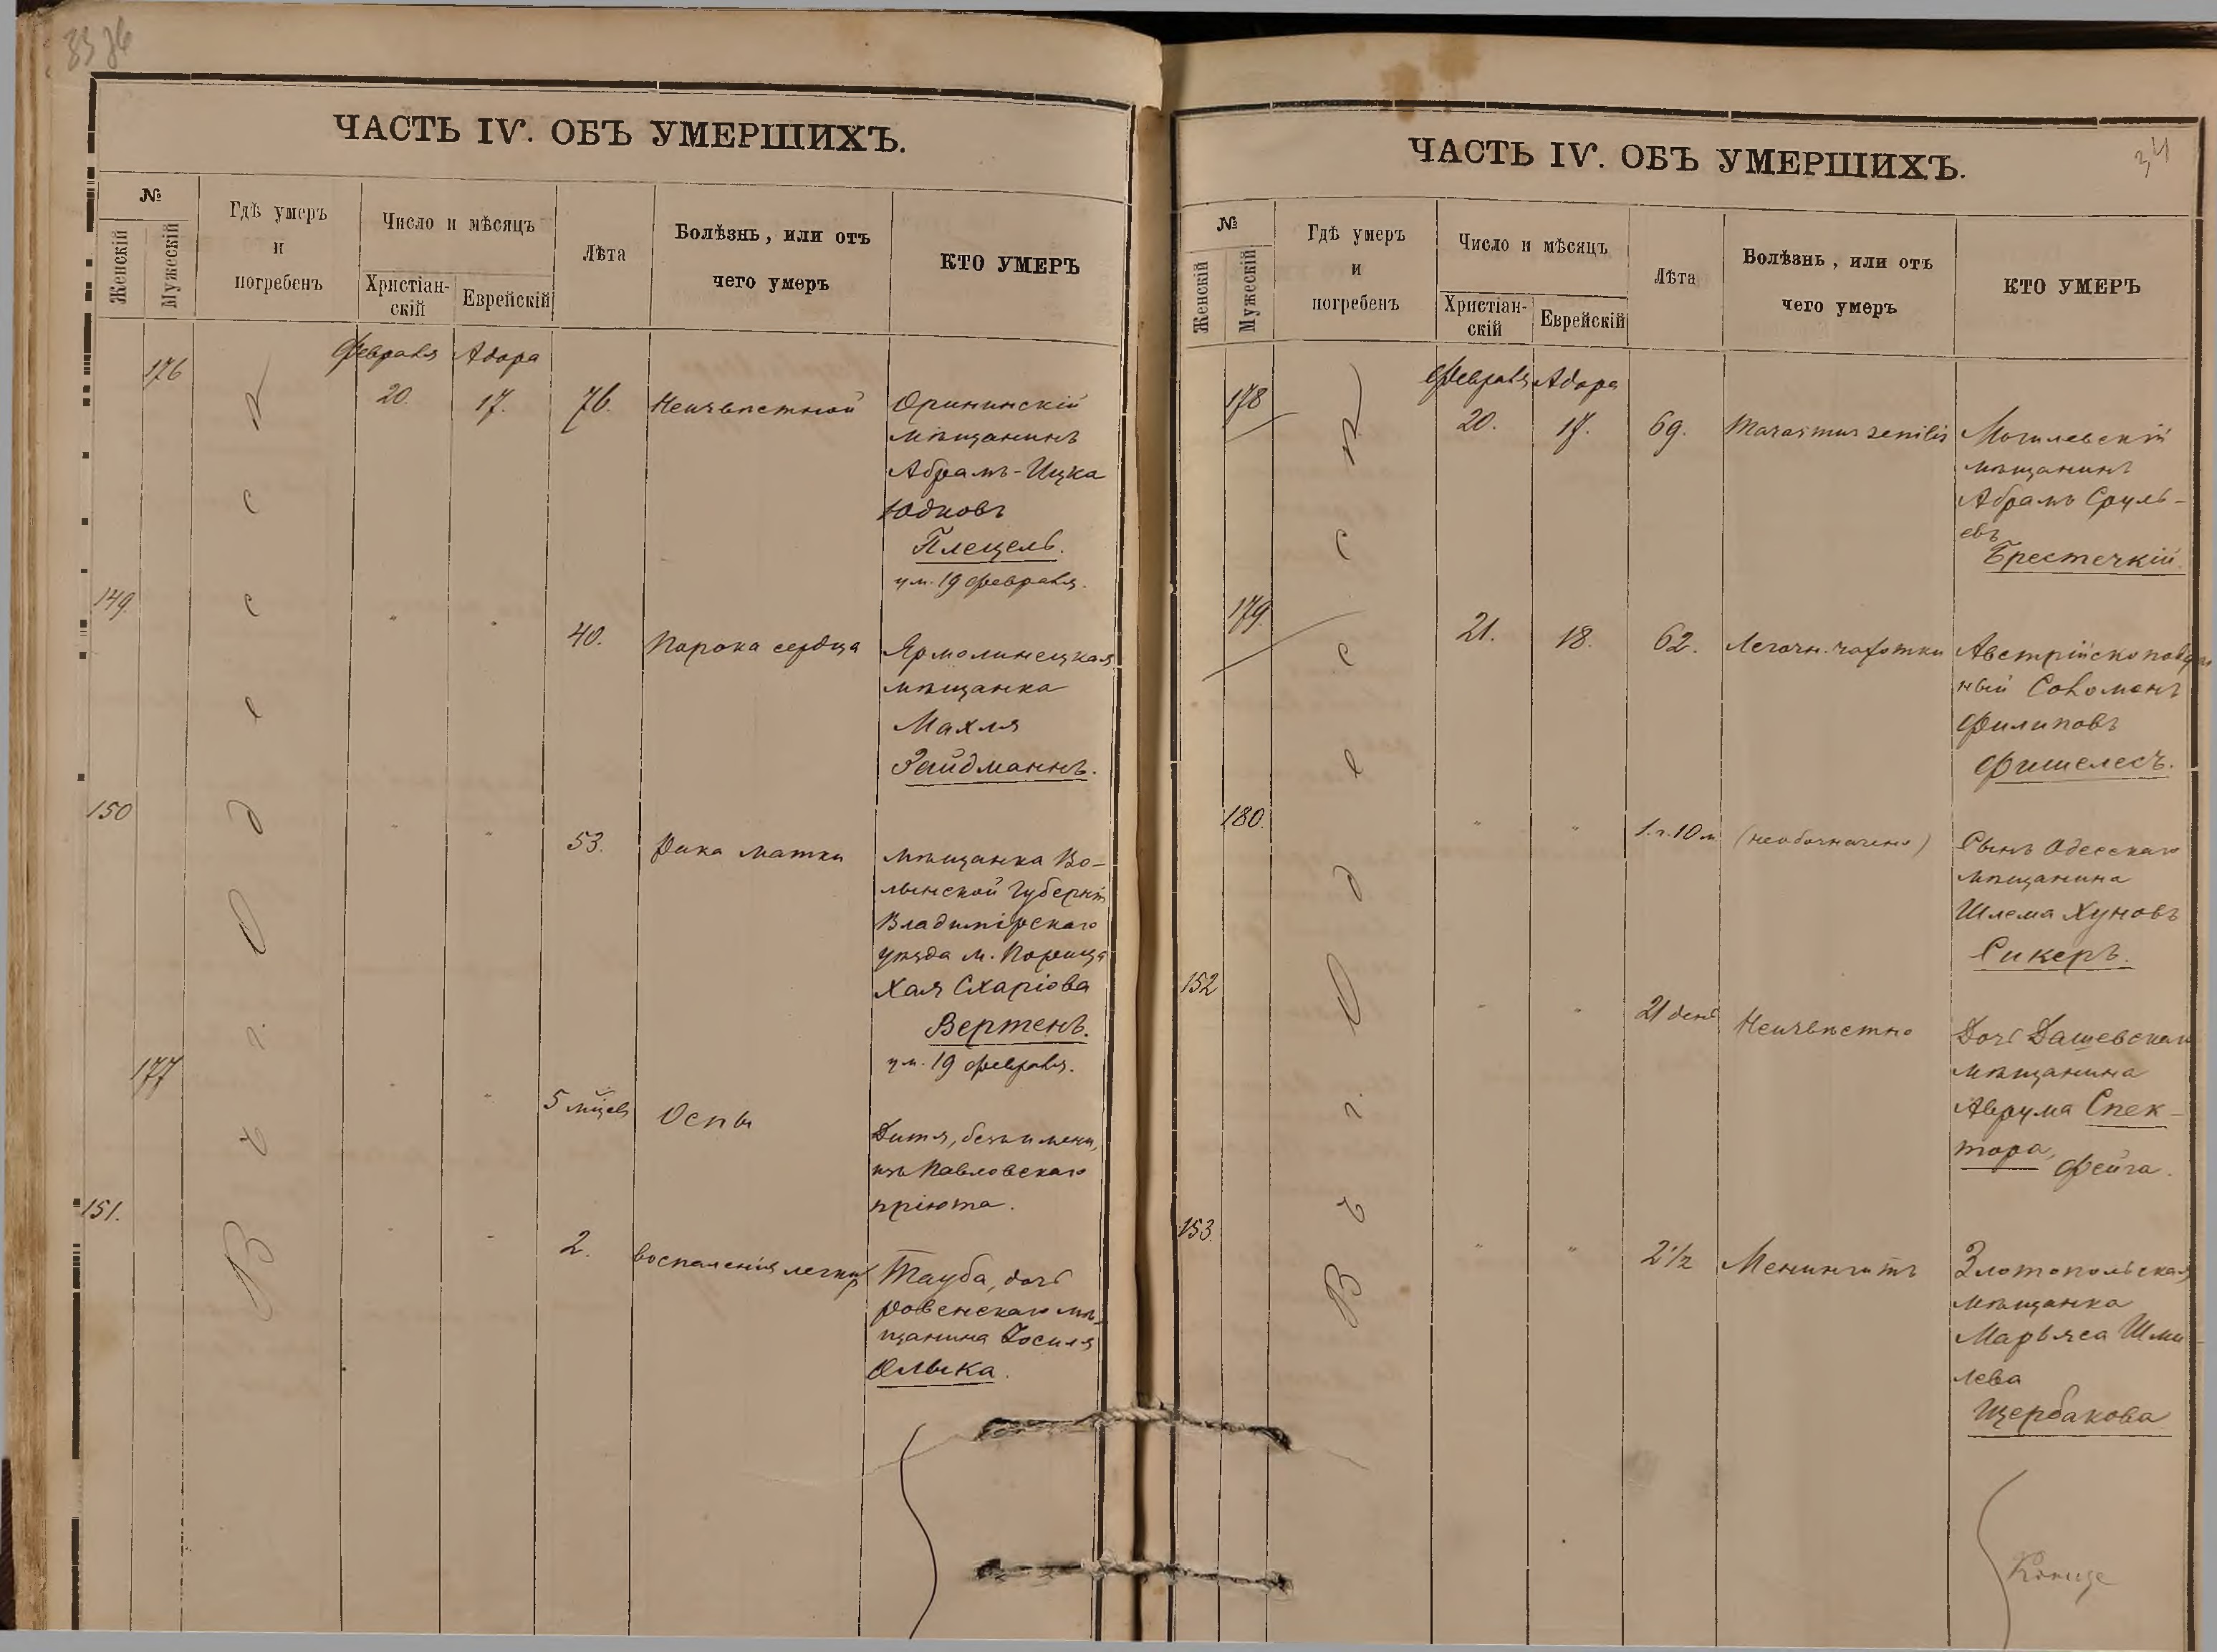 ЧАСТЬ IV. ОБЪ УМЕРШИХЪ.
№
Женскій
Мужескій
Гдѣ умеръ
и
погребенъ
Число и мѣсяцъ
Христіан-
скій
Еврейскій
Лѣта
Болѣзнь, или отъ
чего умеръ
КТО УМЕРЪ
Въ г. Одессѣ
176
Февраля Адара
20. 17. 76. Неизвѣстной
Орининскій
мѣщанинъ
Абрамъ-Ицка
Юдковъ
Плецель.
ум. 19 февраля.
149. " " 40. Порока сердца
Ярмолинецкая
мѣщанка
Махля
Зайдманнъ.
150 " " 53. Рака матки
мѣщанка Во-
лынской губерніи
Владимірскаго
уѣзда м. Порицка
Хая Схаріова
Вертенъ.
ум. 19 февраля.
177 " " 5 мѣцевъ Оспы
Дитя, безъ имени,
изъ Павловскаго
пріюта.
151. " " 2. воспаленія легкихъ
Тауба, дочь
Ровенскаго мѣ-
щанина Іосиля
Олыка.
ЧАСТЬ IV. ОБЪ УМЕРШИХЪ.
34
№
Женскій
Мужескій
Гдѣ умеръ
и
погребенъ
Число и мѣсяцъ
Христіан-
скій
Еврейскій
Лѣта
Болѣзнь, или отъ
чего умеръ
КТО УМЕРЪ
Въ г. Одессѣ
178
Февраля Адара
20. 17. 69. Marasmus senilis
Могилевскій
мѣщанинъ
Абрамъ Сруль-
евъ
Брестечкій.
179. 21. 18. 62. Легочн. чахотки
Австрійскоподдан
ный Соломонъ
Филиповъ
Фишелесъ.
180. " " 1. г. 10 м (необозначено)
Сынъ Одесскаго
мѣщанина
Шлема Хуновъ
Сикеръ.
152 " " 21 день Неизвѣстно
Дочь Дашевскаго
мѣщанина
Аврума Спек-
тора, Фейга.
153. " " 2½ Менингитъ
Златопольская
мѣщанка
Марьяса Шми-
лева
Щербакова